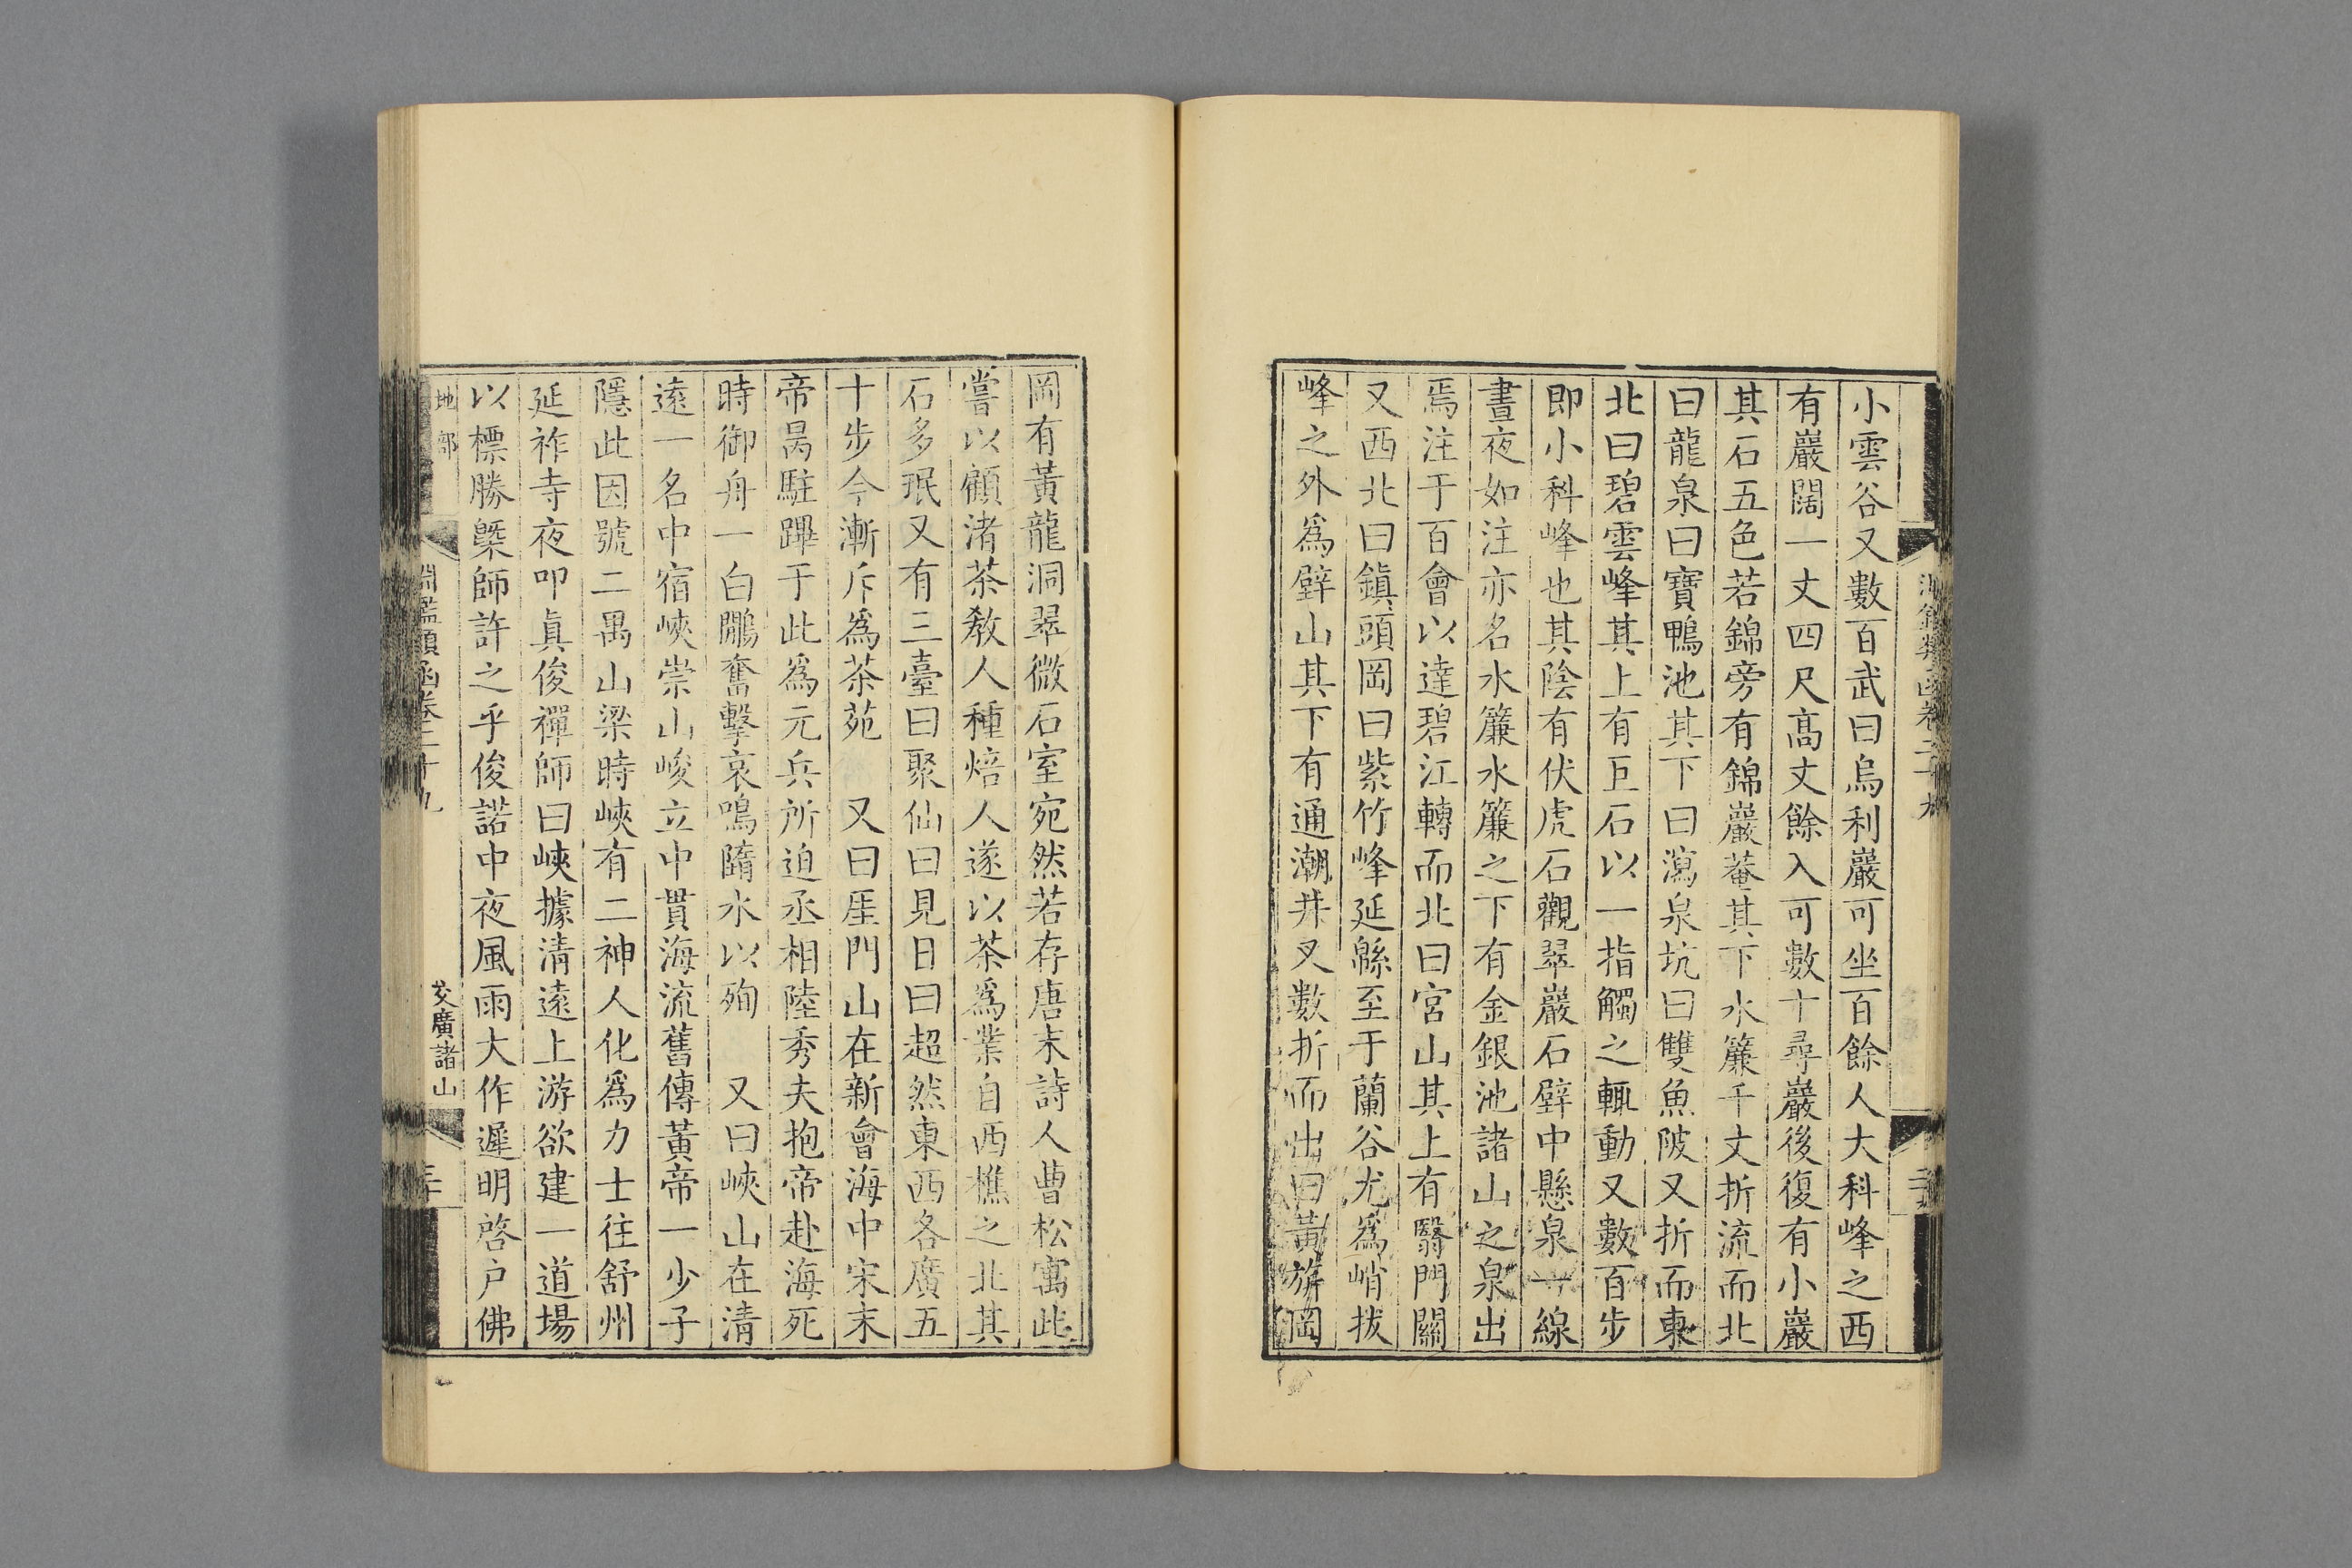 小雲谷又數百武曰烏利巖可坐百餘人大科峰之西
有巖闊一丈四尺髙丈餘入可數十尋巖後復有小巖
其石五色若錦旁有錦巖菴其下水簾千丈折流而北
曰龍泉曰寶鴨池其下曰瀉泉坑曰雙魚陂又折而東
北曰碧雲峰其上有巨石以一指觸之輒動又數百步
即小科峰也其陰有伏虎石觀翠巖石壁中懸泉一線
晝夜如注亦名水簾水簾之下有金銀池諸山之泉出
焉注于百會以達碧江轉而北曰宮山其上有翳門關
又西北曰鎮頭岡曰紫竹峰延緜至于蘭谷尤爲峭拔
峰之外爲壁山其下有通潮井又數折而出曰黃旂岡
岡有黃龍洞翠微石室宛然若存唐末詩人曹松寓此
嘗以顧渚茶敎人種焙人遂以茶爲業自西樵之北其
石多珉又有三臺曰聚仙曰見日曰超然東西各廣五
十步今漸斥爲茶苑　又曰厓門山在新會海中宋末
帝昺駐蹕于此爲元兵所迫丞相陸秀夫抱帝赴海死
時御舟一白鷴奮擊哀鳴隨水以殉　又曰峽山在清
遠一名中宿峽崇山峻立中貫海流舊傳黃帝一少子
隱此因號二禺山梁時峽有二神人化爲力士往舒州
延祚寺夜叩眞俊禪師曰峽據清遠上游欲建一道場
以標勝槩師許之乎俊諾中夜風雨大作遲明啓户佛
地部
淵鑑類函卷二十九
交廣諸山